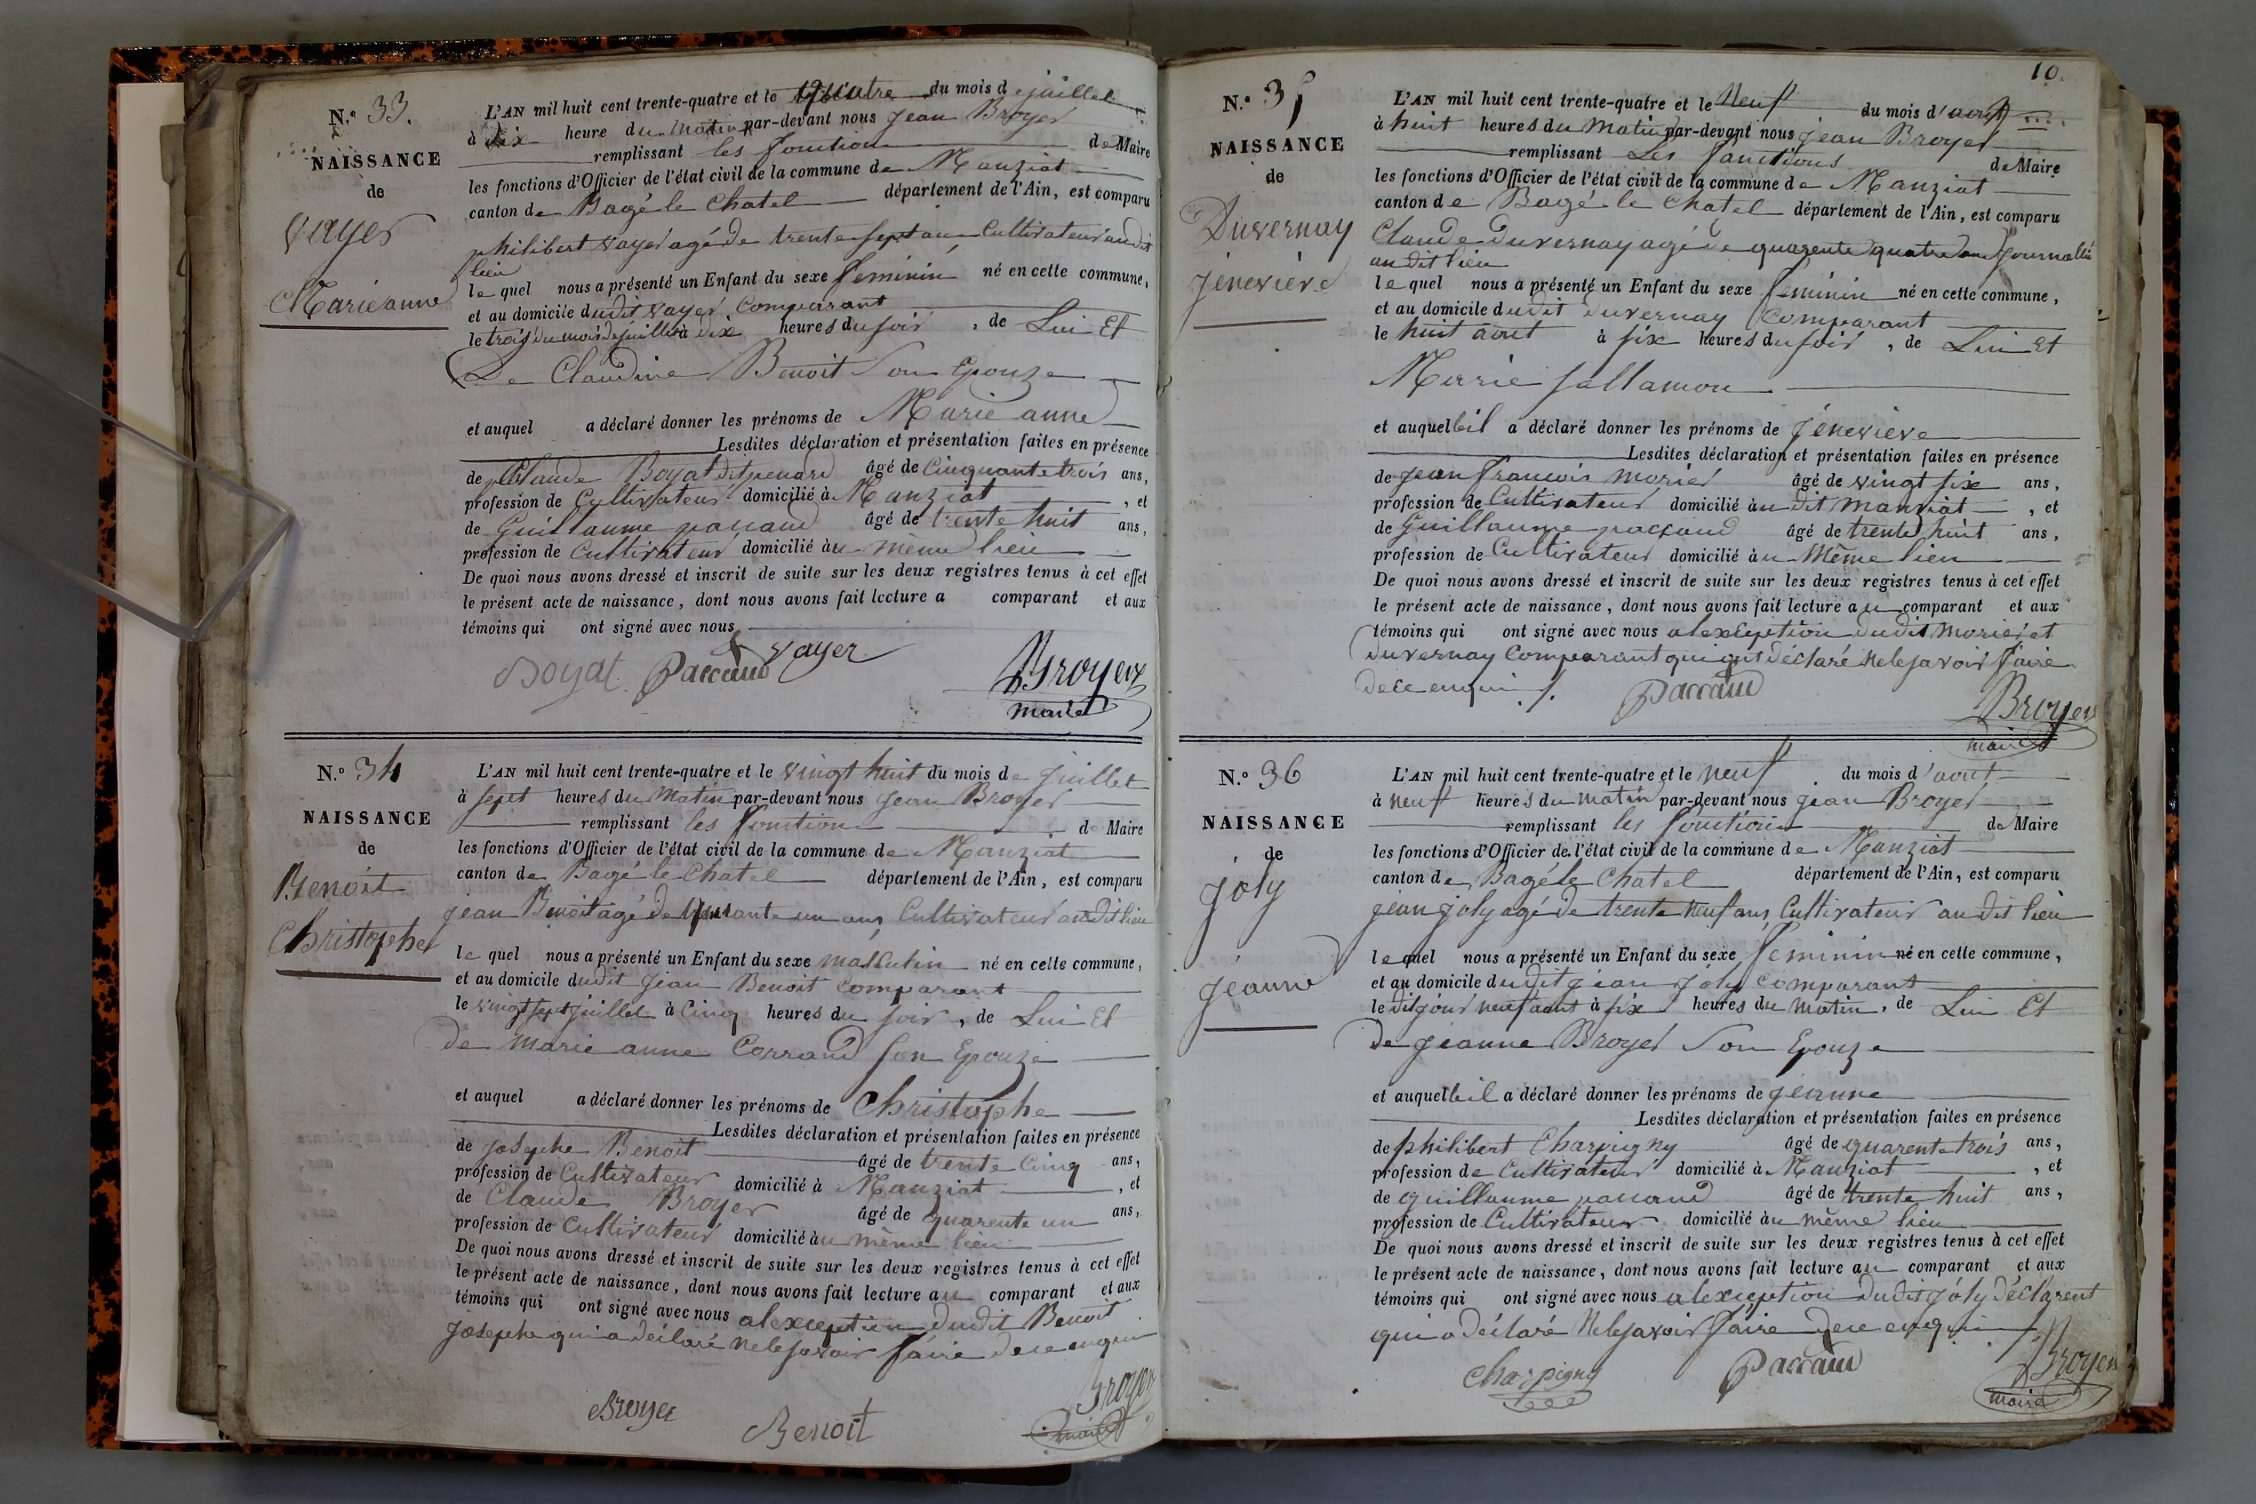 N.º 33.
NAISSANCE
de
Vayer
Marie anne
L'AN mil huit cent trente-quatre et le quatre du mois de juillet
à dix heure du matin par-devant nous jean Broyer
remplissant les fonction de Maire
les fonctions d'Officier de l'état civil de la commune de Manziat
canton de Bagé le Chatel département de l'Ain, est comparu
philibert vayer agé de trente sept ans Cultivateur audit
lieu
le quel nous a présenté un Enfant du sexe feminin né en cette commune,
et au domicile dudit vayer Comparant
le trois du mois de juillet à dix heures du soir, de Lui Et
De Claudine Benoit Son Epouze
et auquel a déclaré donner les prénoms de Marie anne
Lesdites déclaration et présentation faites en présence
de Claude Boyat dit penard âgé de Cinquante trois ans,
profession de Cultivateur domicilié à Manziat, et
de Guillaume paccaud âgé de trente huit ans,
profession de Cultivateur domicilié au même lieu
De quoi nous avons dressé et inscrit de suite sur les deux registres tenus à cet effet
le présent acte de naissance, dont nous avons fait lecture a comparant et aux
témoins qui ont signé avec nous
vayer
Boyat Paccaud Broyer
maire
N.º 34
NAISSANCE
de
Benoit
Christophe
L'AN mil huit cent trente-quatre et le vingt huit du mois de juillet
à sept heures du Matin par-devant nous jean Broyer
remplissant les fonction de Maire
les fonctions d'Officier de l'état civil de la commune de Manziat
canton de Bagé le Chatel département de l'Ain, est comparu
jean Benoit agé de quarante un ans Cultivateur audit lieu
le quel nous a présenté un Enfant du sexe masculin né en cette commune,
et au domicile dudit jean Benoit comparant
le vingt sept juillet à Cinq heures du soir, de Lui Et
de marie anne Corrand son Epouze
et auquel a déclaré donner les prénoms de Christophe
Lesdites déclaration et présentation faites en présence
de josephe Benoit âgé de trente Cinq ans,
profession de Cultivateur domicilié à Manziat, et
de Claude Broyer âgé de quarente un ans,
profession de Cultivateur domicilié au même lieu
De quoi nous avons dressé et inscrit de suite sur les deux registres tenus à cet effet
le présent acte de naissance, dont nous avons fait lecture au comparant et aux
témoins qui ont signé avec nous alexception dudit Benoit
josephe qui a déclaré ne le savoir faire de ce enquis
Broyer Benoit Broyer
maire
10.
N.º 35
NAISSANCE
de
Duvernay
jéneviéve
L'AN mil huit cent trente-quatre et le Neuf du mois d'aout
à huit heures du Matin par-devant nous jean Broyer
remplissant Les fonctions de Maire
les fonctions d'Officier de l'état civil de la commune de Manziat
canton de Bagé le Chatel département de l'Ain, est comparu
Claude duvernay agé de quarente quatre ans journallié
audit lieu
le quel nous a présenté un Enfant du sexe féminin né en cette commune,
et au domicile dudit duvernay comparant
le huit aout à six heures du soir, de Lui Et
Marie sallamon
et auquel il a déclaré donner les prénoms de jéneviéve
Lesdites déclaration et présentation faites en présence
de jean francois morier âgé de vingt six ans,
profession de Cultivateur domicilié au dit manziat, et
de Guillaume paccaud âgé de trente huit ans,
profession de Cultivateur domicilié au Même lieu
De quoi nous avons dressé et inscrit de suite sur les deux registres tenus à cet effet
le présent acte de naissance, dont nous avons fait lecture au comparant et aux
témoins qui ont signé avec nous alexception dudit morier et
duvernay Comparant qui ont déclaré ne le savoir faire
de ce enquis ./.
Paccaud Broyer
maire
N.º 36
NAISSANCE
de
joly
jéanne
L'AN mil huit cent trente-quatre et le neuf du mois d'aout
à neuf heures du matin par-devant nous jean Broyer
remplissant les fonction de Maire
les fonctions d'Officier de l'état civil de la commune de Manziat
canton de Bagé le Chatel département de l'Ain, est comparu
jean joly agé de trente neuf ans Cultivateur audit lieu
le quel nous a présenté un Enfant du sexe féminin né en cette commune,
et au domicile dudit jean joly comparant
le dit jour neuf aout à six heures du matin, de Lui Et
De jéanne Broyer Son Epouze
et auquel il a déclaré donner les prénoms de jéanne
Lesdites déclaration et présentation faites en présence
de philibert Charpigny âgé de quarente trois ans,
profession de Cultivateur domicilié à Manziat, et
de guillaume paccaud âgé de trente huit ans,
profession de Cultivateur domicilié au même lieu
De quoi nous avons dressé et inscrit de suite sur les deux registres tenus à cet effet
le présent acte de naissance, dont nous avons fait lecture au comparant et aux
témoins qui ont signé avec nous alexception dudit joly déclarent
qui a déclaré ne le savoir faire de ce enquis ./.
Charpigny Paccaud Broyer
maire